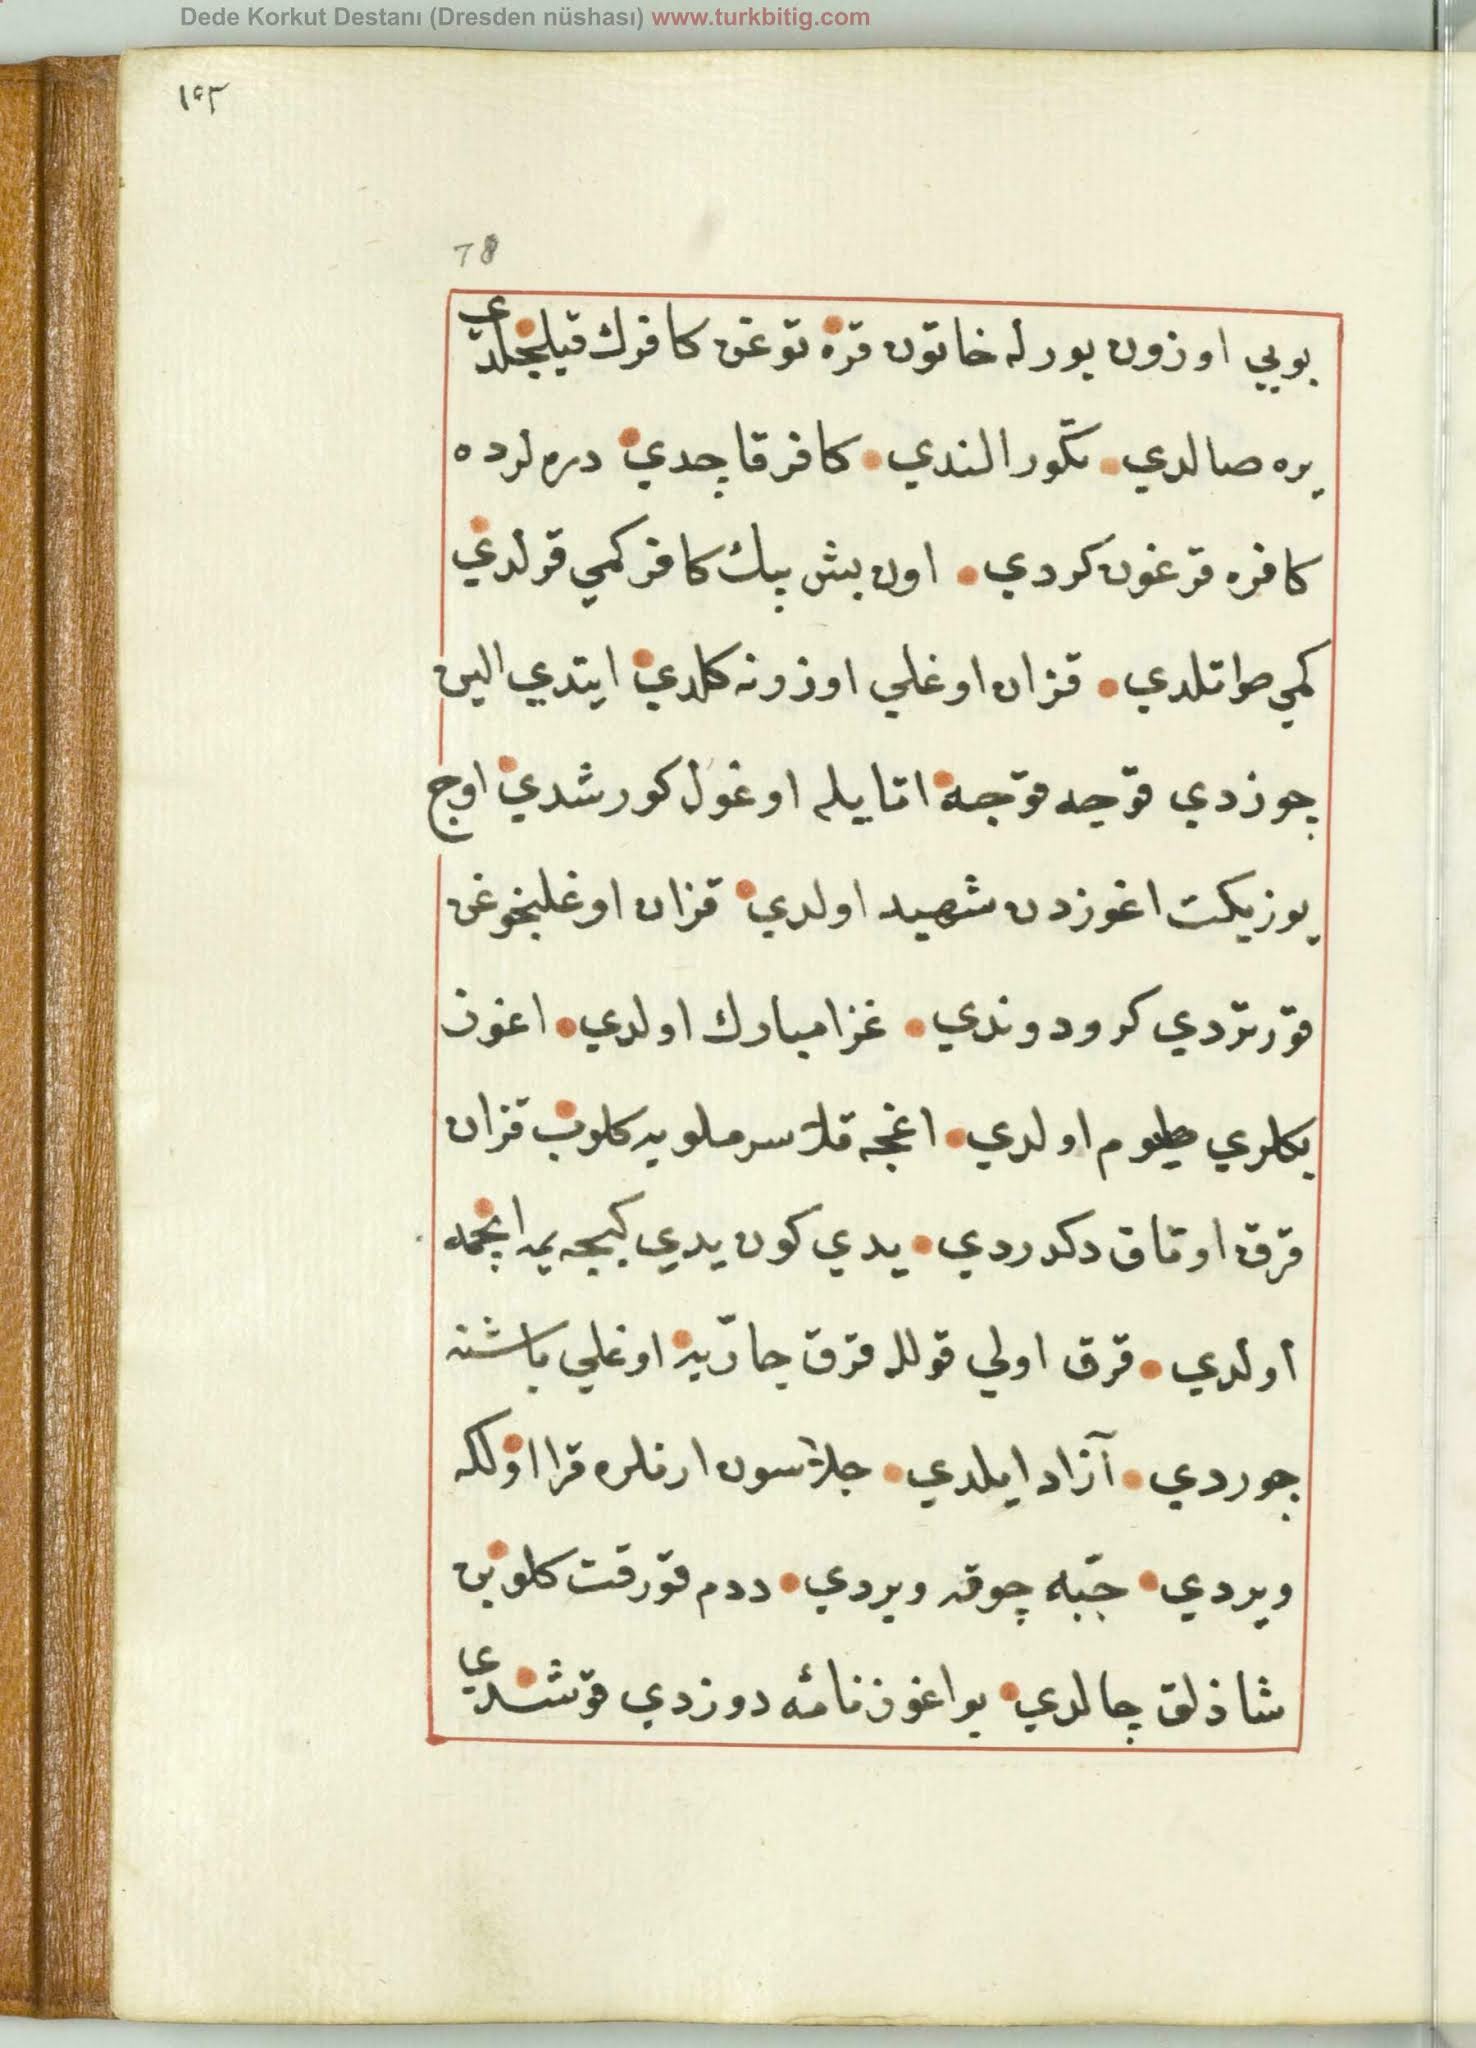 Dede Korkut Destanı (Dresden nüshası) www.turkbitig.com
١٥٣
78
بویی اوزون بورله خاتون قره توغن كافرك قیلیجلدی
یره صالدی تكور الندی كافر قاچدی دره لرده
كافره قرغون كردی اون بش بیك كافر كمی قرلدی
كمی طوتلدی قزان اوغلی اوزرنه كلدی ایتدی الین
چوزدی قوجه قوجه اتا ییله اوغول كورشدی اوج
یوز یكت اغوزدن شهید اولدی قزان اوغلنجوغن
قورتردی كرو دوندی غزا مبارك اولدی اغوز
بكلری طیوم اولدی اغجه قلا سرملویه كلوب قزان
قرق اوتاق دكدردی یدی كون یدی كیجه یمه ایچمه
اولدی قرق اولی قولله قرق جاریه اوغلی باشنه
چوردی آزاد ایلدی جلاسون ارنلره قرا اولكه
ویردی جبه چوقه ویردی ددم قورقت كلوبن
شاذلق چالدی بو اغوزنامه دوزدی قوشدی